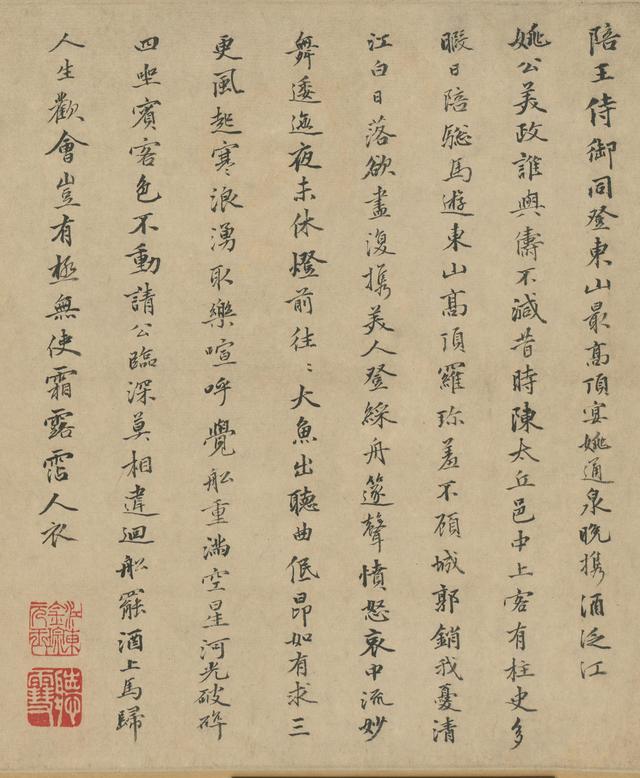 陪王侍御同登東山最高頂宴姚通泉晚携酒泛江
姚公美政誰與儔不減昔時陳太丘邑中上客有柱史多
暇日陪驄馬遊東山高頂羅珍羞不顧城郭銷我憂清
江白日落欲盡復携美人登綵舟篴聲憤怒哀中流妙
舞逶迤夜未休燈前往〻大魚出聽曲低昂如有求三
更風起寒浪湧取樂喧呼覺船重滿空星河光破碎
四坐賓客色不動請公臨深莫相違迴船罷酒上馬歸
人生歡會豈有極無使霜露霑人衣
江東金琮元玉
聽雪